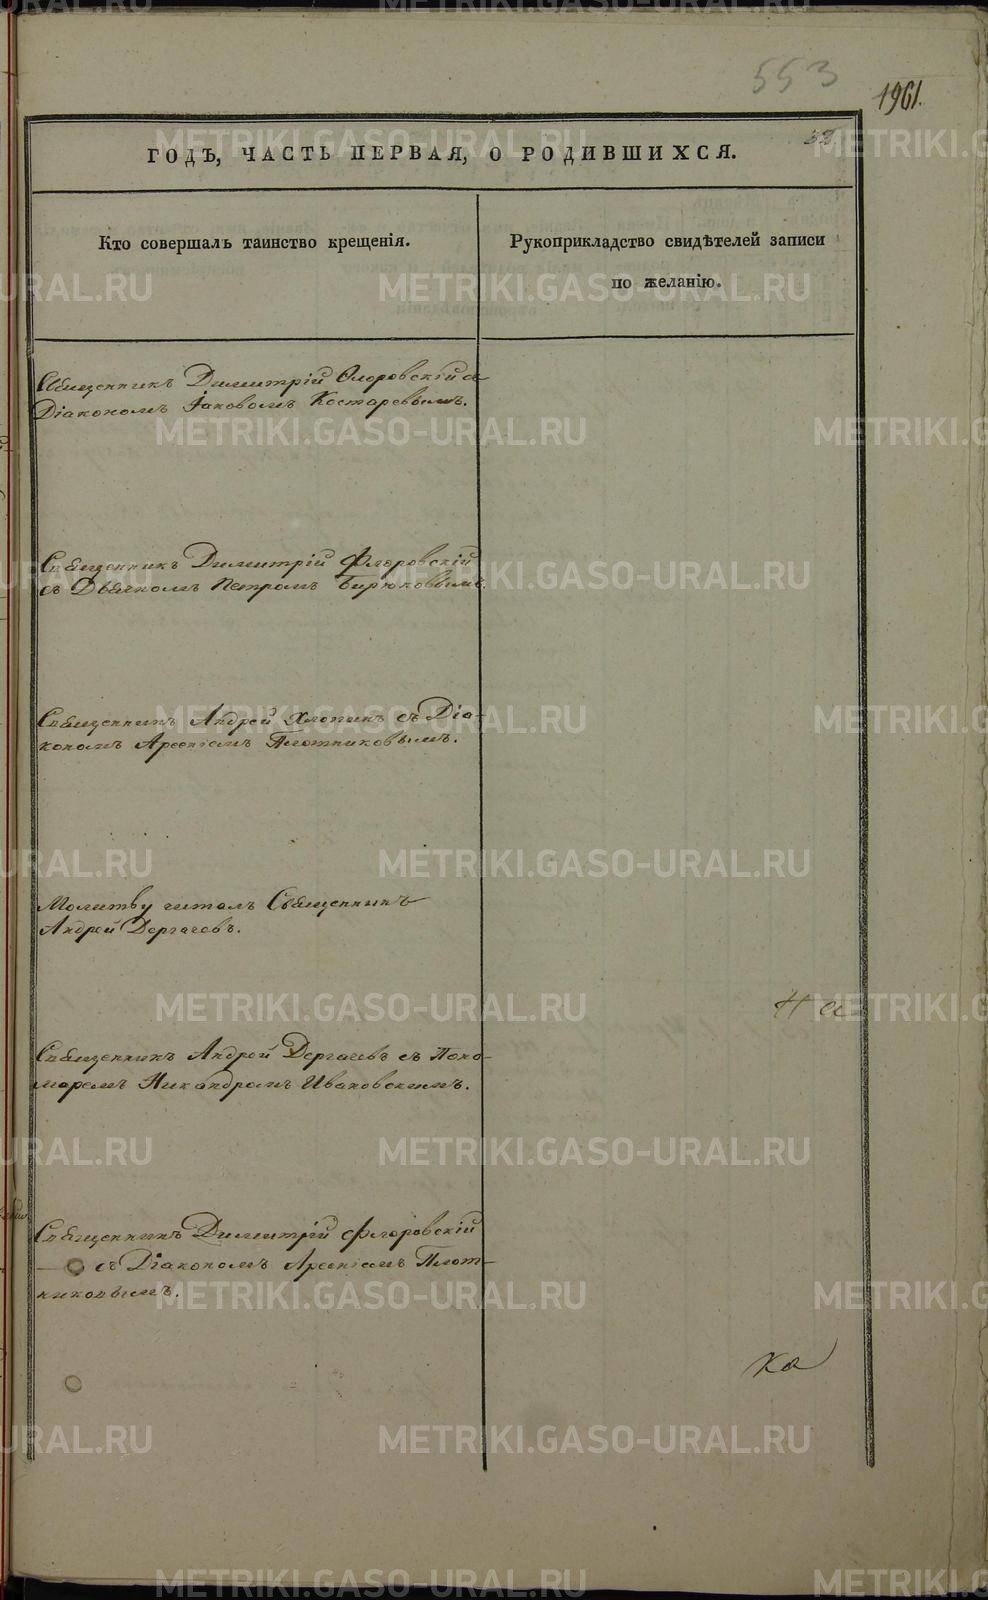 553
1961.
58
ГОДЪ, ЧАСТЬ ПЕРВАЯ, О РОДИВШИХСЯ.
Кто совершалъ таинство крещенія.
Рукоприкладство свидѣтелей записи
по желанію.
Священникъ Димитрій Флоровскій съ
Діакономъ Іаковомъ Костаревымъ.
Священникъ Димитрій Флоровскій
съ Дьячкомъ Петромъ Бирюковымъ.
Священникъ Андрей Хлопинъ съ Діа-
кономъ Арсеніемъ Плотниковымъ.
Молитву читалъ Священникъ
Андрей Дергачевъ.
На
Священникъ Андрей Дергачевъ съ Поно-
маремъ Никандромъ Ивановскимъ.
Священникъ Димитрій Флоровскій
съ Діакономъ Арсеніемъ Плот-
никовымъ.
Ка
METRIKI.GASO-URAL.RU